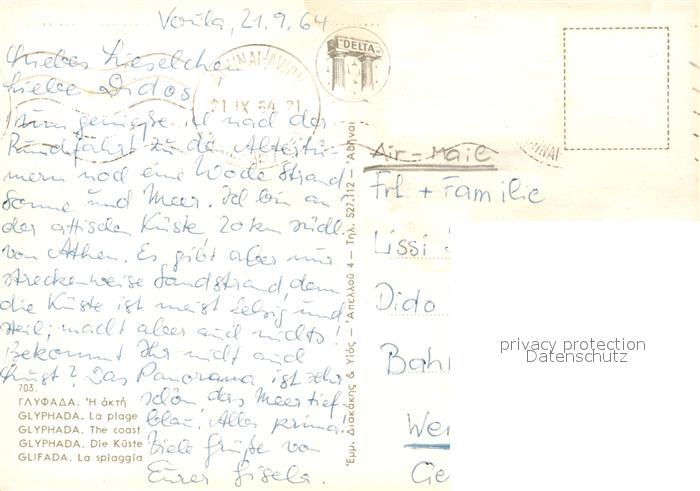 Voula, 21.9.64
Liebes Lieselchen
Liebe Didos
Nun genieße ich nach der
Rundfahrt zu den Altertü-
mern noch eine Woche Strand
Sonne und Meer. Ich bin an
der attischen Küste 20 km südl.
von Athen. Es gibt aber nur
streckenweise Sandstrand, denn
die Küste ist meist felsig und
steil; macht aber auch nichts!
Bekommt Ihr nicht auch
Lust? Das Panorama ist sehr
schön das Meer tief
blau. Alles prima!
Viele Grüße von
Eurer Gisela.
703.
ΓΛΥΦΑΔΑ. Ἡ ἀκτή
GLYPHADA. La plage
GLYPHADA. The coast
GLYPHADA. Die Küste
GLIFADA. La spiaggia
21 IX 64 21
DELTA
Ἐμμ. Διακάκης & Υἱός — Ἀπελλοῦ 4 — Τηλ. 527.112 — Ἀθῆναι
Air-Mail
Frl. + Familie
Lissi
Dido
Bah
We
Ge
privacy protection
Datenschutz